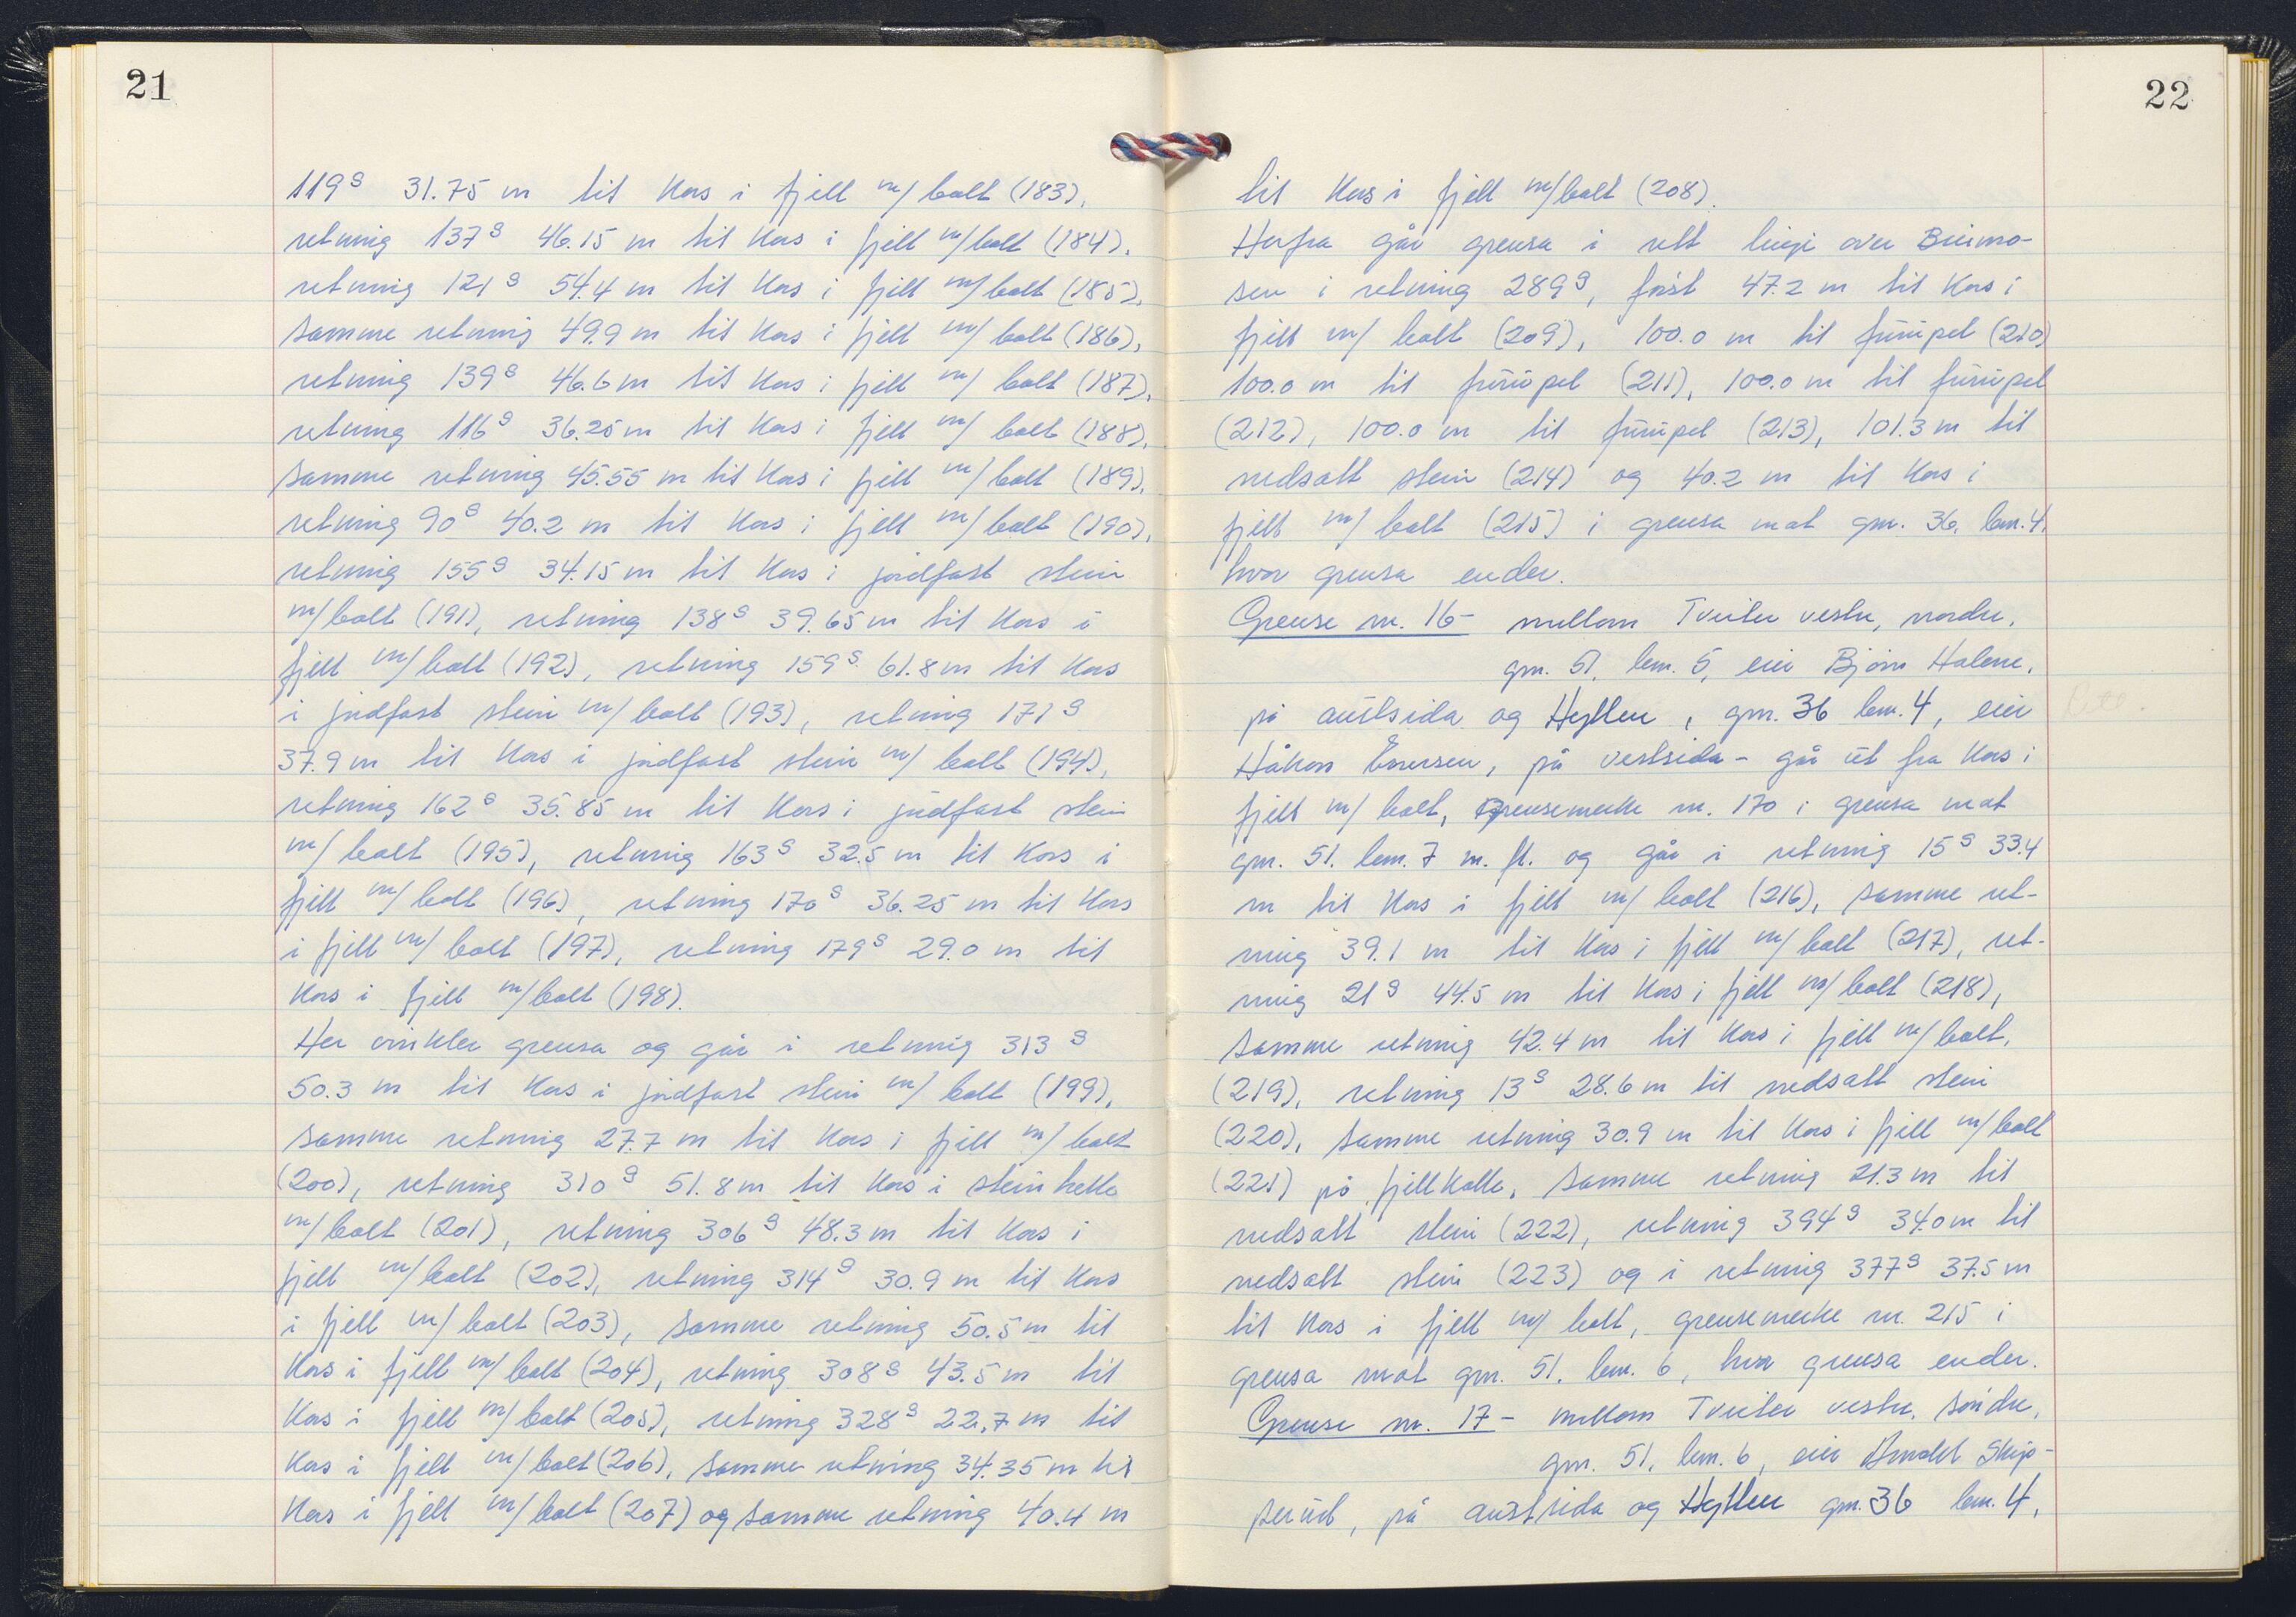 21
119g 31.75 m til kors i fjell m/bolt (183),
retning 137g 46.15 m til kors i fjell m/bolt (184),
retning 121g 54.4 m til kors i fjell m/bolt (185),
samme retning 49.9 m til kors i fjell m/bolt (186),
retning 139g 46.6 m til kors i fjell m/bolt (187),
retning 116g 36.25 m til kors i fjell m/bolt (188),
samme retning 45.55 m til kors i fjell m/bolt (189),
retning 90g 40.2 m til kors i fjell m/bolt (190),
retning 155g 34.15 m til kors i jordfast stein
m/bolt (191), retning 138g 39.65 m til kors i
fjell m/bolt (192), retning 159g 61.8 m til kors
i jordfast stein m/bolt (193), retning 171g
37.9 m til kors i jordfast stein m/bolt (194),
retning 162g 35.85 m til kors i jordfast stein
m/bolt (195), retning 163g 32.5 m til kors i
fjell m/bolt (196), retning 170g 36.25 m til kors
i fjell m/bolt (197), retning 179g 29.0 m til
kors i fjell m/bolt (198).
Her vinkler grensa og går i retning 313g
50.3 m til kors i jordfast stein m/bolt (199),
samme retning 27.7 m til kors i fjell m/bolt
(200), retning 310g 51.8 m til kors i steinhelle
m/bolt (201), retning 306g 48.3 m til kors i
fjell m/bolt (202), retning 314g 30.9 m til kors
i fjell m/bolt (203), samme retning 50.5 m til
kors i fjell m/bolt (204), retning 308g 43.5 m til
kors i fjell m/bolt (205), retning 328g 22.7 m til
kors i fjell m/bolt (206), samme retning 34.35 m til
kors i fjell m/bolt (207) og samme retning 40.4 m
22
til kors i fjell m/bolt (208).
Herfra går grensa i rett linje over
i retning 289g, først 47.2 m til kors i
fjell m/bolt (209), 100.0 m til furupel (210)
100.0 m til furupel (211), 100.0 m til furupel
(212), 100.0 m til furupel (213), 101.3 m til
nedsatt stein (214) og 40.2 m til kors i
fjell m/bolt (215) i grensa mot gnr. 36, bnr. 4,
hvor grensa ender.
Grense nr. 16 - mellom Tveiter vestre, nordre,
gnr. 51, bnr. 5, eier Bjørn Halene,
på austsida og Hyllen, gnr. 36 bnr. 4, eier
Håkon, på vestsida - går ut fra kors i
fjell m/bolt, grensemerke nr. 170 i grensa mot
gnr. 51. bnr. 7 m. fl. og går i retning 15g 33.4
m til kors i fjell m/bolt (216), samme ret-
ning 39.1 m til kors i fjell m/bolt (217), ret-
ning 21g 44.5 m til kors i fjell m/bolt (218),
samme retning 42.4 m til kors i fjell m/bolt,
(219), retning 13g 28.6 m til nedsatt stein
(220), samme retning 30.9 m til kors i fjell m/bolt
(221) på fjellkolle, samme retning 21.3 m til
nedsatt stein (222), retning 394g 34.0 m til
nedsatt stein (223) og i retning 377g 37.5 m
til kors i fjell m/bolt, grensemerke nr. 215 i
grensa mot gnr. 51. bnr. 6, hvor grensa ender.
Grense nr. 17 - mellom Tveiter vestre, søndre,
gnr. 51, bnr. 6, eier
på austsida og Hyllen gnr. 36 bnr. 4,